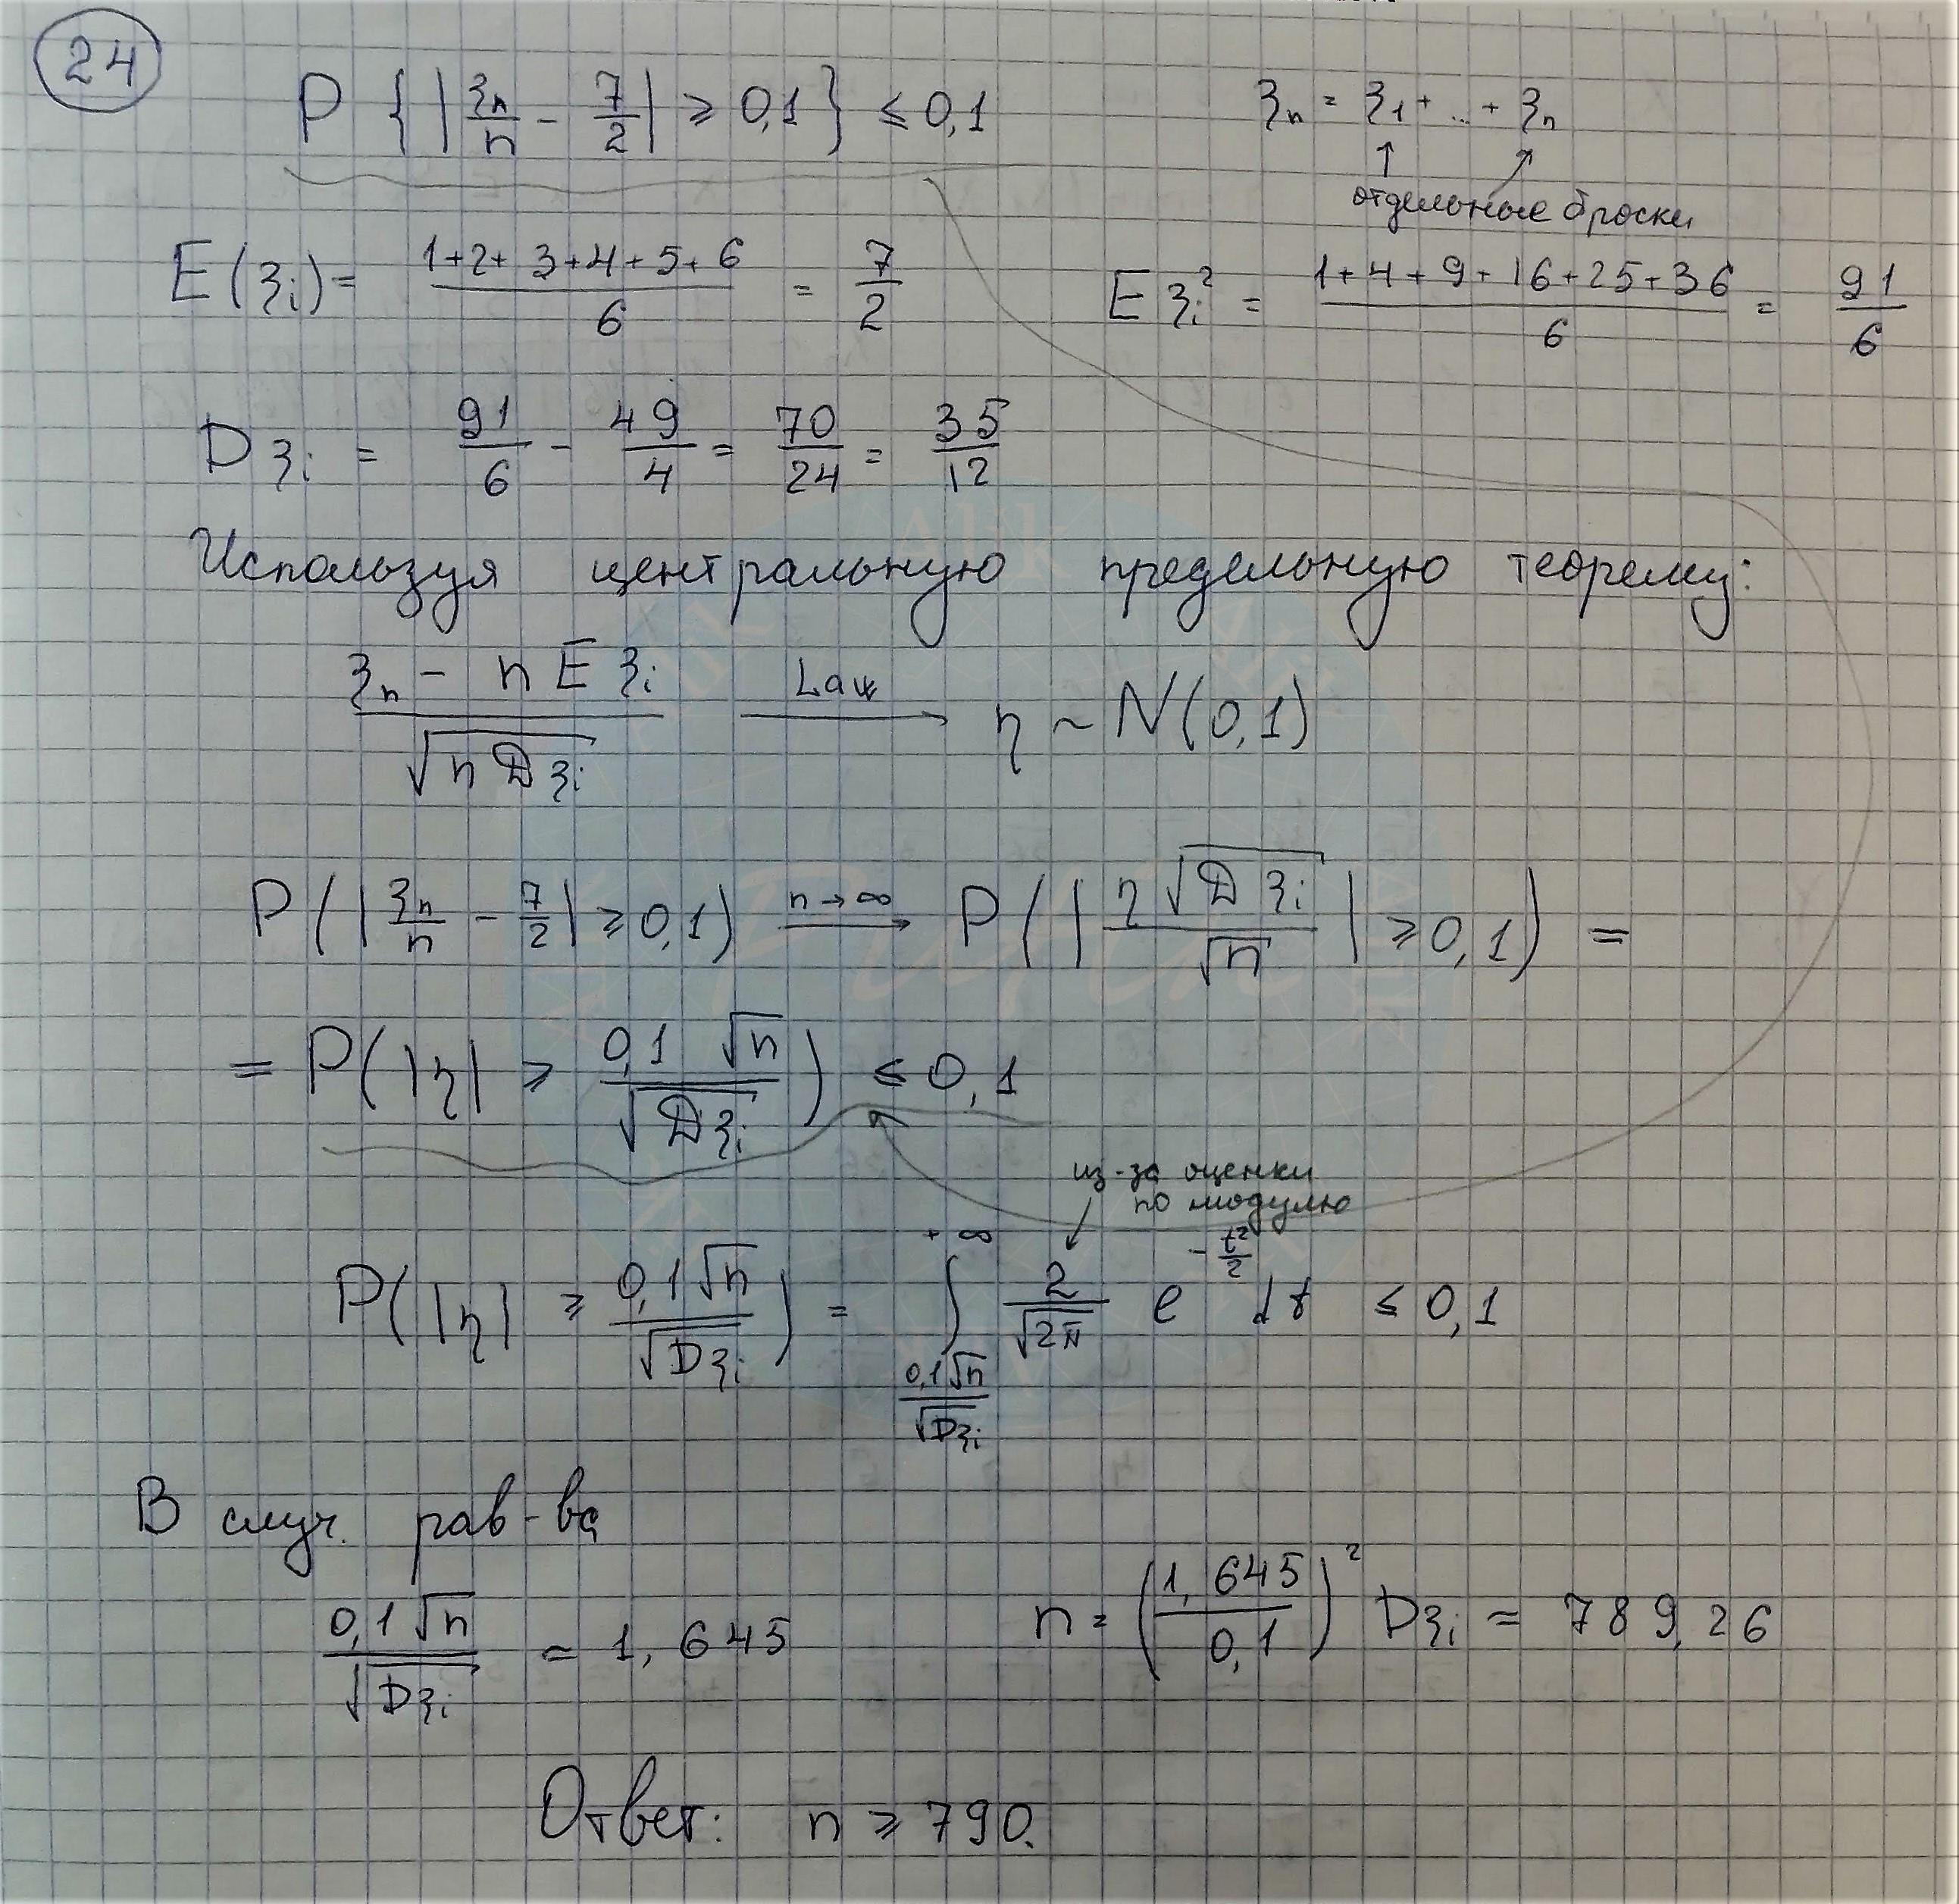 24
P { | ξₙ/n - 7/2 | ⩾ 0,1 } ≤ 0,1
ξₙ = ξ₁ + ... + ξₙ
отдельные броски
E(ξᵢ) = (1+2+3+4+5+6)/6 = 7/2
Eξᵢ² = (1+4+9+16+25+36)/6 = 91/6
Dξᵢ = 91/6 - 49/4 = 70/24 = 35/12
Используя центральную предельную теорему:
(ξₙ - nEξᵢ)/√(nDξᵢ) Law → η ~ N(0,1)
P(|ξₙ/n - 7/2| ⩾ 0,1) n→∞ → P(|η√(Dξᵢ)/√n| ⩾ 0,1) =
= P(|η| ⩾ 0,1√n/√(Dξᵢ)) ≤ 0,1
из-за оценки
по модулю
P(|η| ⩾ 0,1√n/√(Dξᵢ)) = ∫_{0,1√n/√(Dξᵢ)}^{+∞} 2/√(2π) e^{-t²/2} dt ≤ 0,1
В случ. рав-ва
0,1√n/√(Dξᵢ) = 1,645
n = (1,645/0,1)² Dξᵢ ≈ 789,26
Ответ: n ⩾ 790.